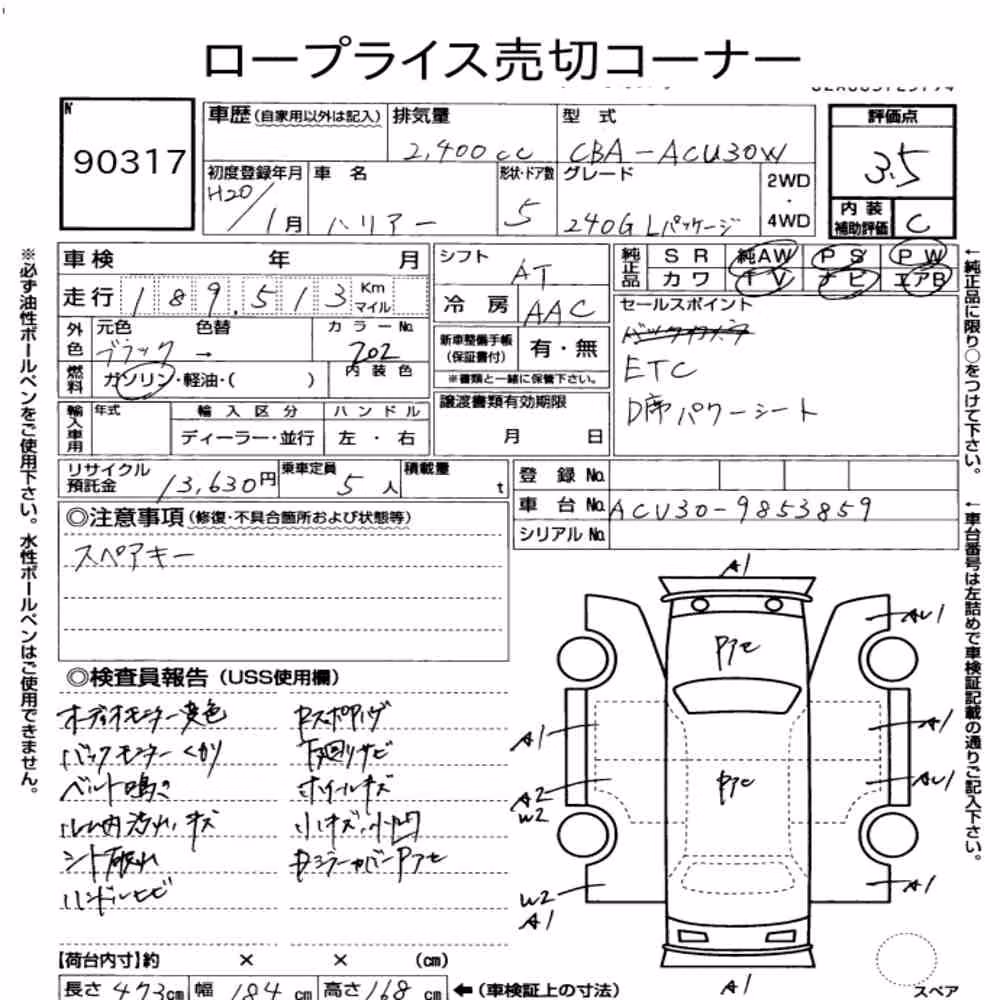 ロープライス売切コーナー
№
90317
車歴(自家用以外は記入)
排気量
2,400cc
型 式
CBA-ACU30W
評価点
3.5
初度登録年月
H20/1月
車 名
ハリアー
形状・ドア数
5
グレード
240G Lパッケージ
2WD
・
4WD
内 装
補助評価
C
車検 年 月
走行 189,513 Km
マイル
外色
元色 色替
ブラック →
カラーNo.
202
燃料
ガソリン・軽油・( )
内装色
輸入車用
年式
輸入区分
ディーラー・並行
ハンドル
左 ・ 右
シフト
AT
冷 房
AAC
新車整備手帳
(保証書付)
有・無
※書類と一緒に保管下さい。
譲渡書類有効期限
月 日
純正品
SR 純AW PS PW
カワ TV ナビ エアB
セールスポイント
ETC
D席パワーシート
リサイクル
預託金
13,630円
乗車定員
5人
積載量
t
登 録 No.
車 台 No.
ACU30-9853859
シリアル No.
◎注意事項(修復・不具合箇所および状態等)
スペアキー
◎検査員報告(USS使用欄)
オーディオモニター変色
バックモニターくもり
ベルト鳴き
ルーム内汚れ、キズ
シート破れ
ハンドルヒビ
下廻りサビ
ホイールキズ
小キズ、小凹
【荷台内寸】約 × × (cm)
長さ 473cm
幅 184cm
高さ 168cm
←(車検証上の寸法)
A1
AU1
A1
A1
A2
W2
AU1
W2
A1
A1
A1
スペア
※必ず油性ボールペンをご使用下さい。水性ボールペンはご使用できません。
←純正品に限り○をつけて下さい。
←車台番号は左詰めで車検証記載の通りご記入下さい。